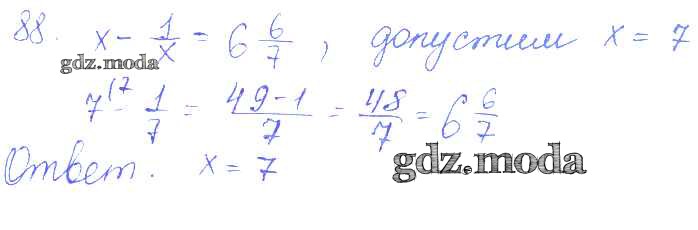 88. x - 1/x = 6 6/7, допустим x = 7
gdz.moda
7 (7 - 1/7 = 49-1/7 = 48/7 = 6 6/7
Ответ. x = 7
gdz.moda